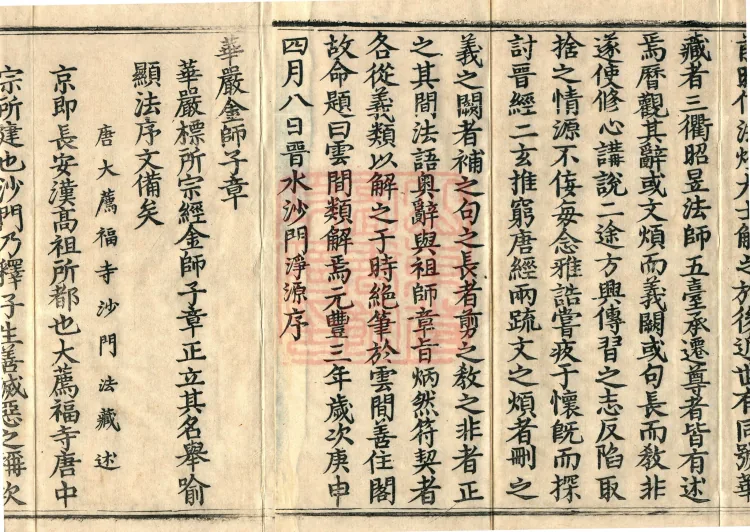 法燈大士解之於後近世有同號華
藏者三衢昭昱法師五臺承遷尊者皆有述
焉曆觀其辭或文煩而義闕或句長而教非
遂使修心講說二途方興傳習之志反陷取
捨之情源不佞每念雅誥嘗疚于懷既而探
討晉經二玄推窮唐經兩疏文之煩者刪之
義之闕者補之句之長者剪之教之非者正
之其間法語奧辭與祖師章旨炳然符契者
各從義類以解之于時絕筆於雲間善住閣
故命題曰雲間類解焉元豐三年歲次庚申
四月八日晉水沙門淨源序
華嚴金師子章
華嚴標所宗經金師子章正立其名舉喻
顯法序文備矣
唐大薦福寺沙門法藏述
京即長安漢高祖所都也大薦福寺唐中
宗所建也沙門乃釋子生善滅惡之稱次